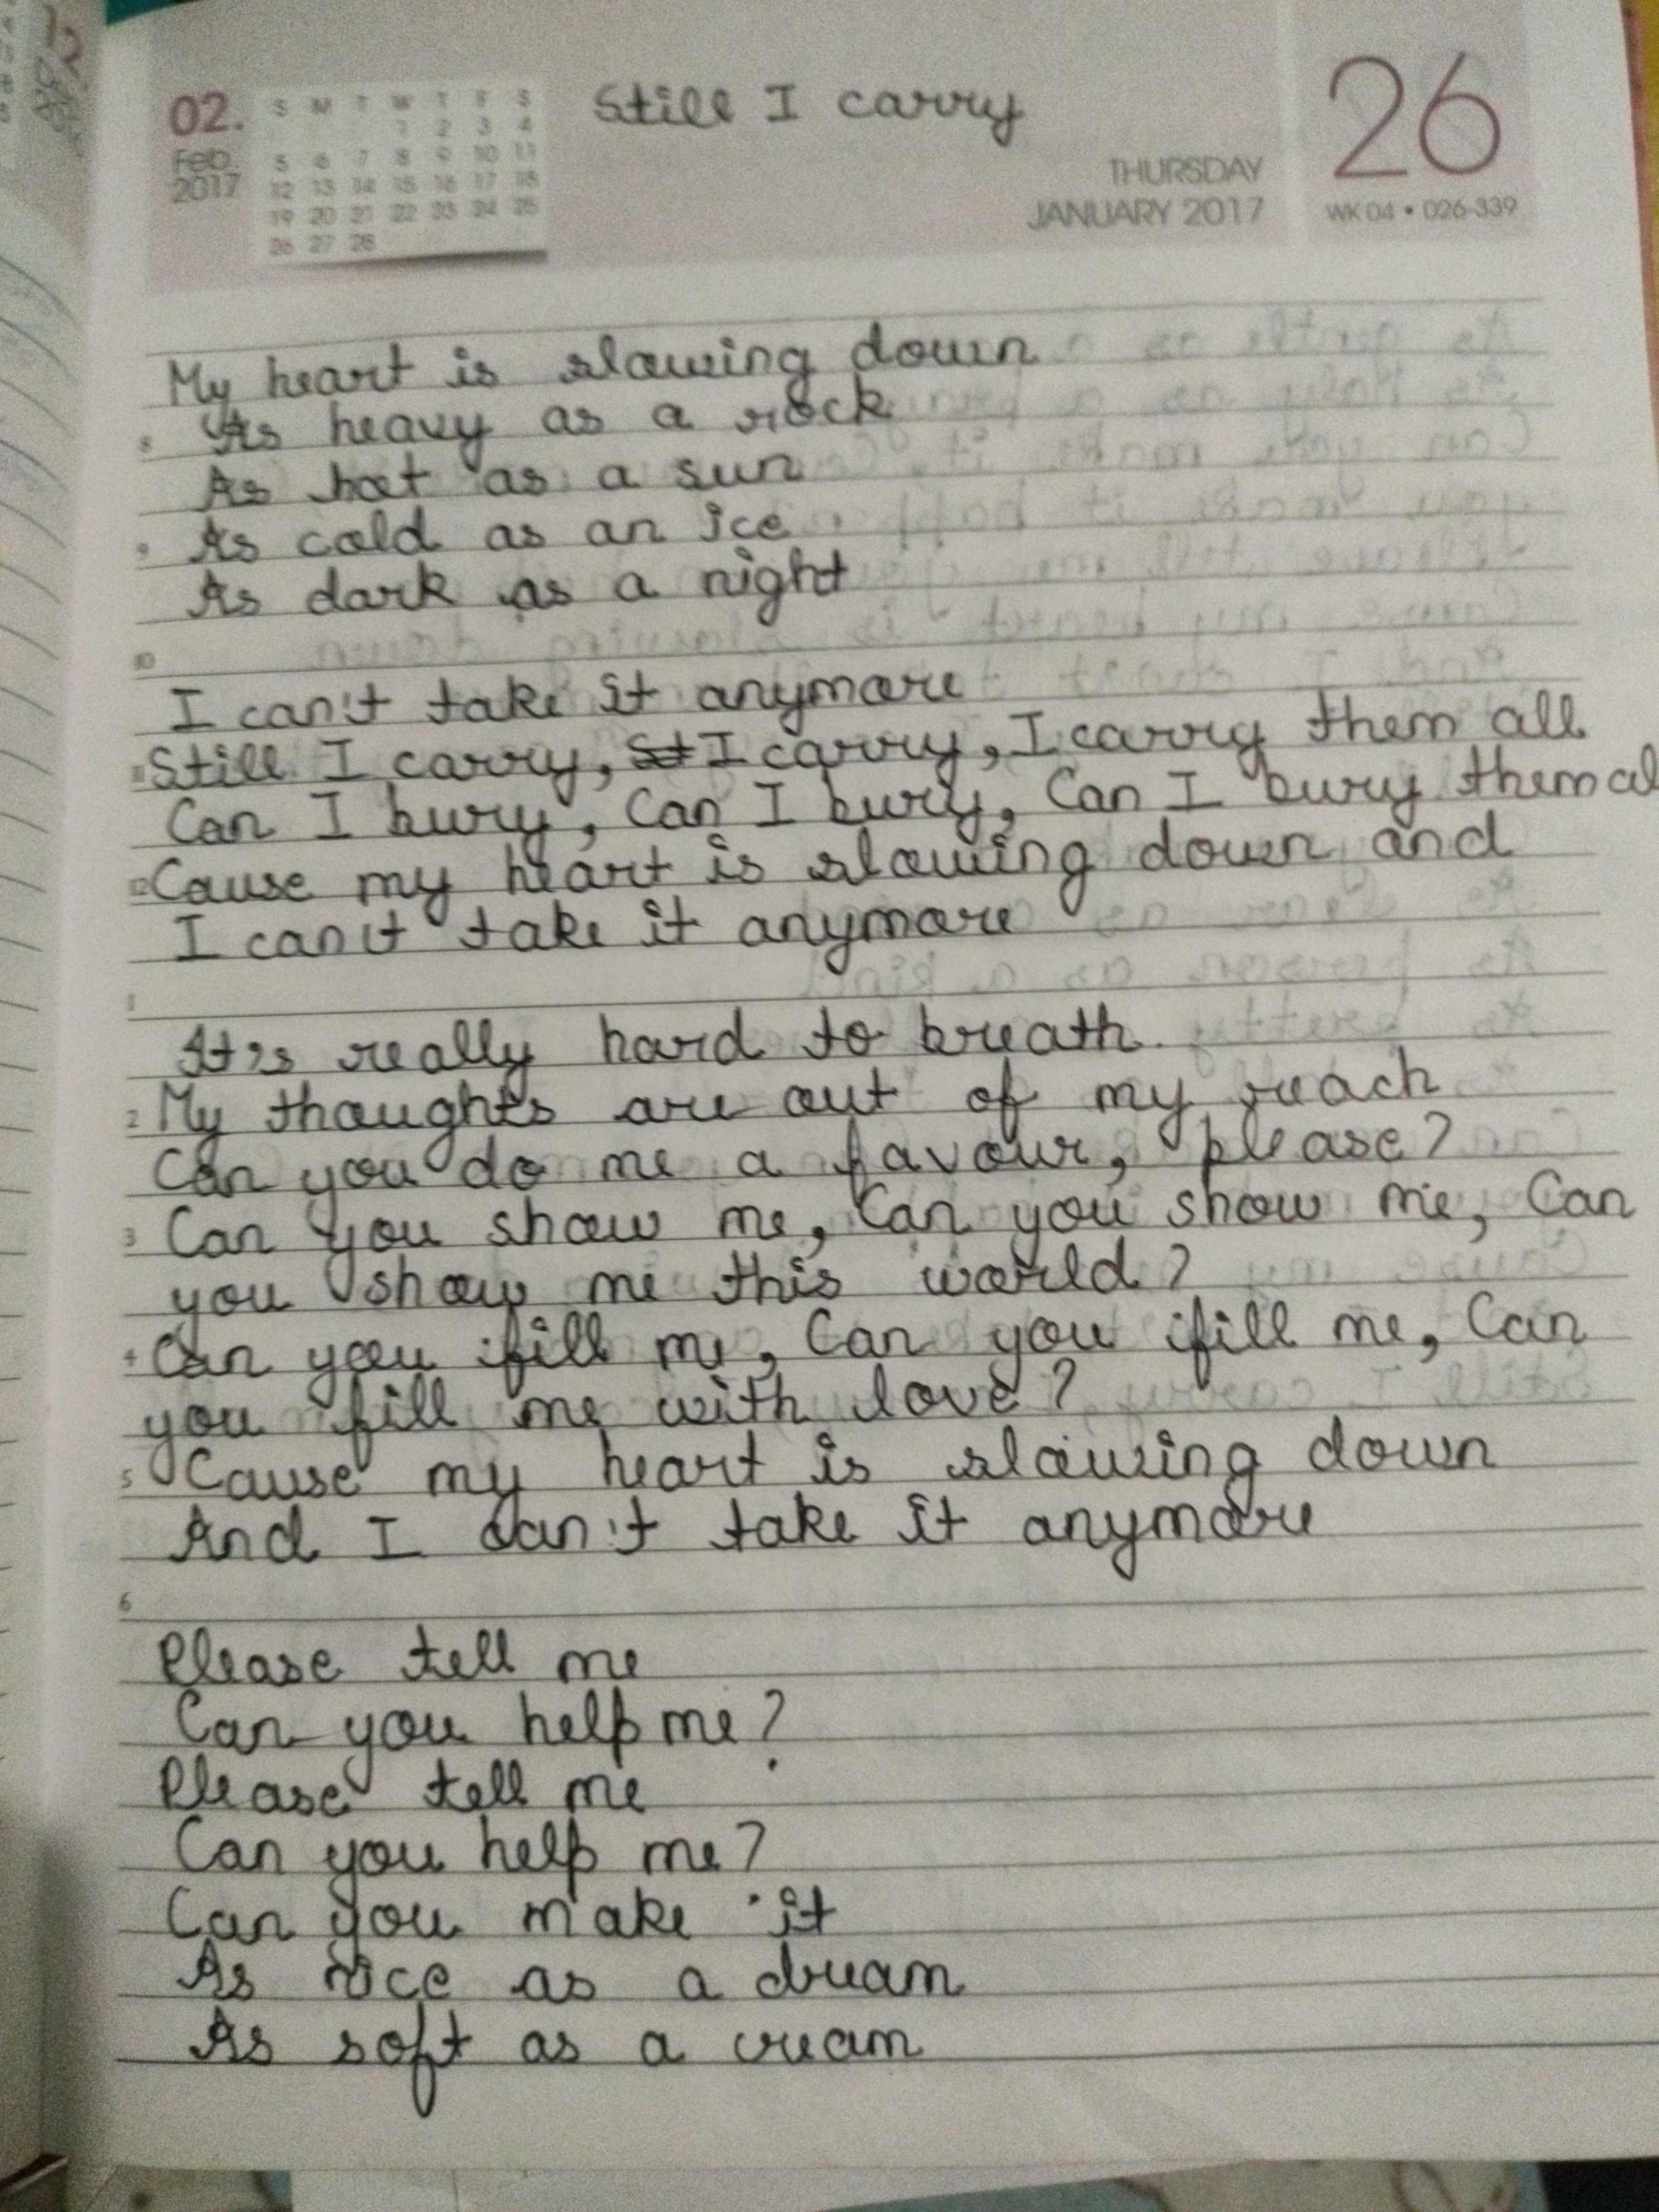 02.
Feb.
2017
S M T W T F S
1 2 3 4
5 6 7 8 9 10 11
12 13 14 15 16 17 18
19 20 21 22 23 24 25
26 27 28
Still I carry
THURSDAY
JANUARY 2017
26
WK 04 • 026-339
My heart is slowing down
8 As heavy as a rock
As hot as a sun
9 As cold as an ice
As dark as a night
10
I can't take it anymore
11 Still I carry, St I carry, I carry them all
Can I bury, Can I bury, Can I bury them al
12 Cause my heart is slowing down and
I can't take it anymore
1
It's really hard to breath.
2 My thoughts are out of my reach
Can you do me a favour, please?
3 Can you show me, Can you show me, Can
you show me this world?
4 Can you fill me, Can you fill me, Can
you fill me with love?
5 Cause my heart is slowing down
And I can't take it anymore
6
Please tell me
Can you help me?
Please tell me
Can you help me?
Can you make it
As nice as a dream
As soft as a cream